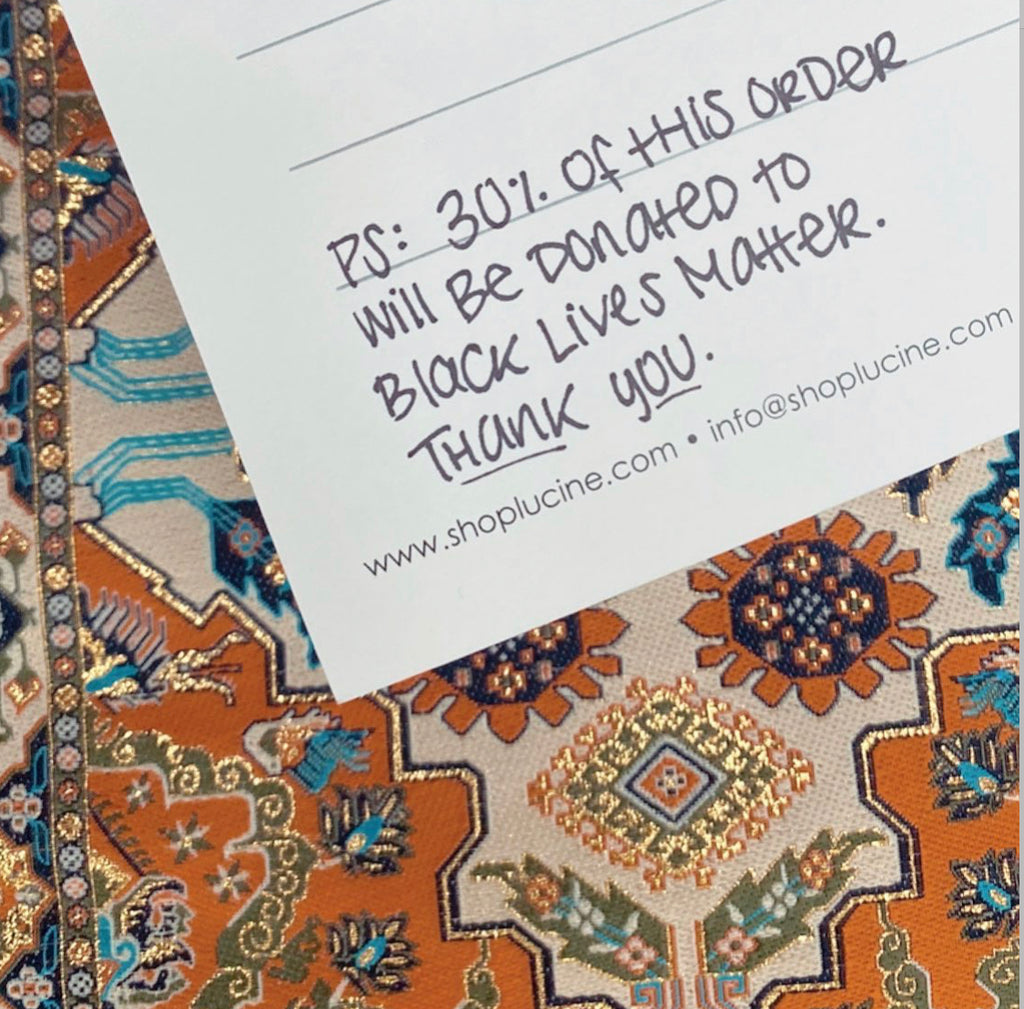 PS: 30% of this order
will be donated to
Black Lives Matter.
Thank you.
www.shoplucine.com • info@shoplucine.com